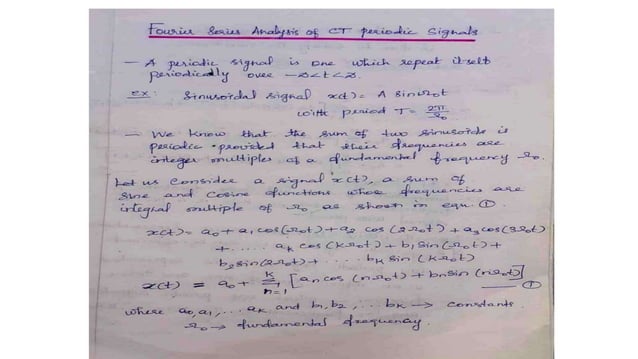 Fourier Series Analysis of CT periodic Signals
- A periodic signal is one which repeat itself
periodically over -∞<t<∞.
ex: Sinusoidal signal x(t)= A sin Ω₀t
with period T= 2π/Ω₀
- We know that the sum of two sinusoids is
periodic provided that their frequencies are
integer multiples of a fundamental frequency Ω₀.
Let us consider a signal x(t), a sum of
sine and cosine functions whose frequencies are
integral multiple of Ω₀ as shown in equ. ①.
x(t)= a₀+a₁ cos(Ω₀t)+a₂ cos (2Ω₀t) +a₃ cos(3Ω₀t)
+ ..... aₖ cos (kΩ₀t) + b₁ sin (Ω₀t) +
b₂ sin(2Ω₀t) + ..... bₖ sin (kΩ₀t)
x(t) = a₀+ Σ k n=1 [aₙ cos (nΩ₀t) + bₙ sin (nΩ₀t)] — ①
where a₀,a₁,...aₖ and b₁,b₂,...bₖ → constants.
Ω₀ → fundamental frequency.